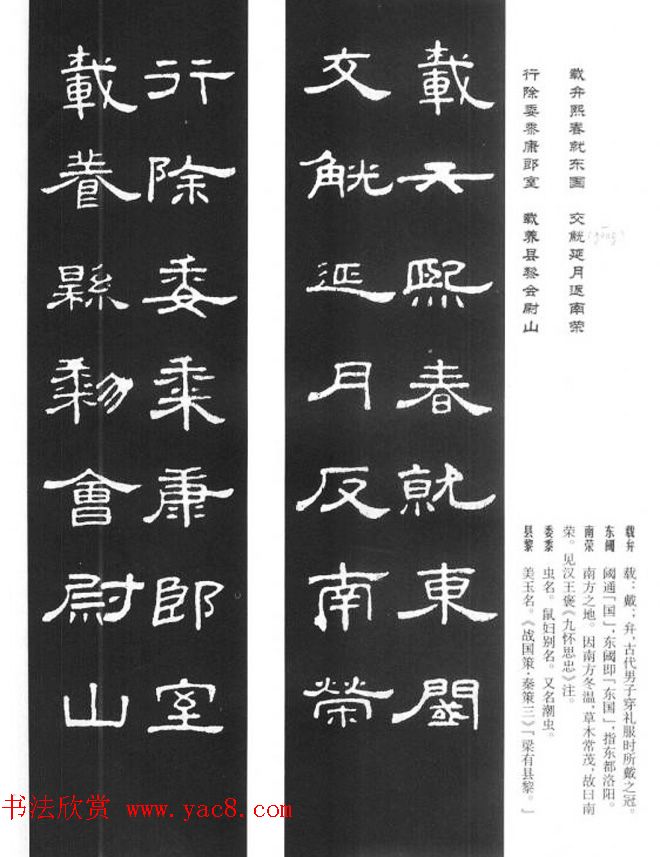 载弁熙春就东国 交觥延月返南荣
(gōng)
行除委黍康郎室 载养县黎会尉山
载弁 载：戴；弁，古代男子穿礼服时所戴之冠。
东阈 阈通「国」，东阈即「东国」，指东都洛阳。
南荣 南方之地。因南方冬温，草木常茂，故曰南
荣。见汉王褒《九怀思忠》注。
委黍 虫名。鼠妇别名。又名潮虫。
县黎 美玉名。《战国策·秦策三》「梁有县黎。」
載弁熙春就東閾
交觥延月反南榮
行除委黍康郎室
載養縣黎會尉山
书法欣赏 www.yac8.com